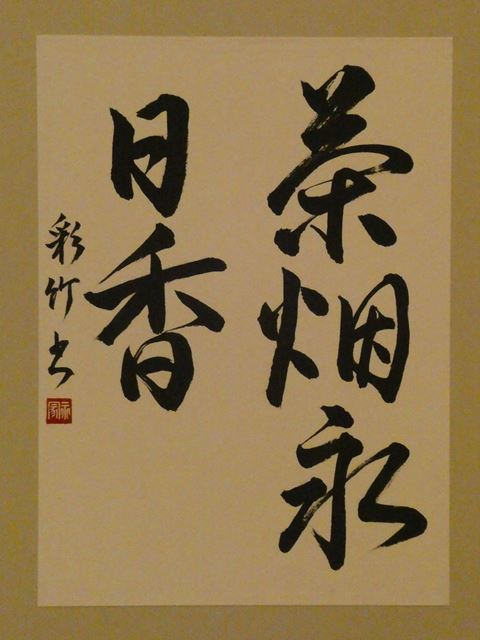 茶烟永
日香
彩竹书